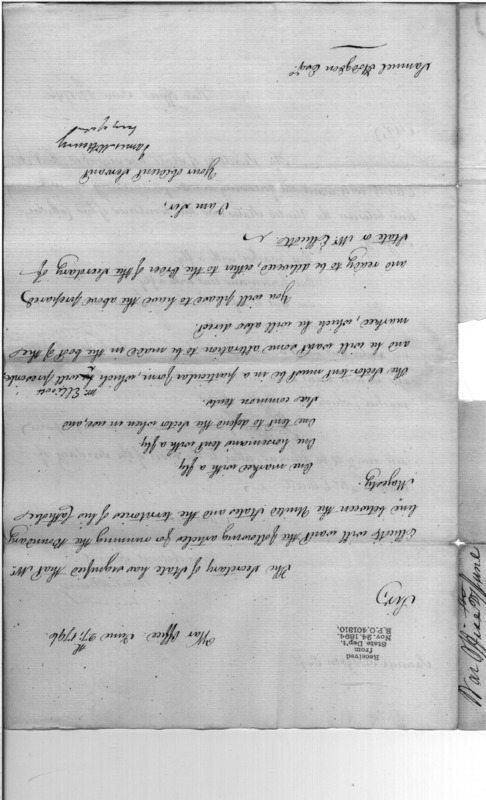 Received
from
State Dep't.
Nov. 24. 1894.
R.P.O. 401810.
War Office June 27th, 1796
Sir,
The Secretary of State has signified that Mr.
Ellicott will want the following articles for running the Boundary
line between the United States and the territories of his Catholic
Majesty.
One markee with a fly
One horsemans tent with a fly
One tent to defend the Sector when in use, and,
Six common tents.
The Sector-tent must be in a particular form, which Mr. Ellicott will furnish,
and he will want some alteration to be made in the body of the
markee, which he will also direct.
You will please to have the above prepared
and ready to be delivered either to the order of the Secretary of
State or Mr. Ellicott.
I am Sir,
Your obedient Servant
James McHenry
Samuel Hodgson Esqr.
War Office 27 June